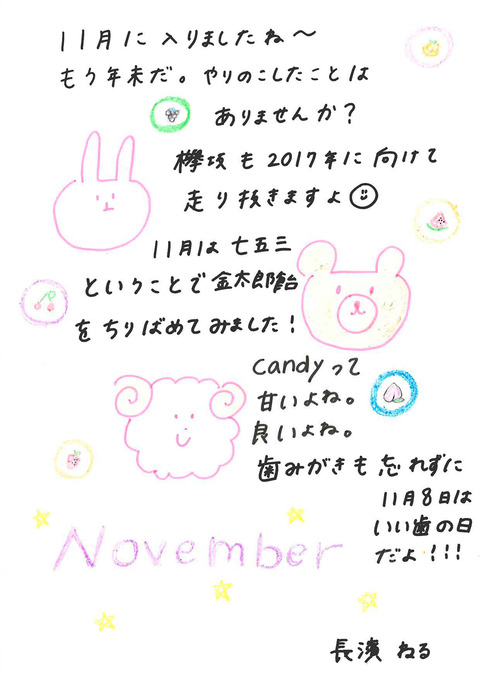 11月に入りましたね〜
もう年末だ。やりのこしたことは
ありませんか？
欅坂も2017年に向けて
走り抜きますよ☺
11月は七五三
ということで金太郎飴
をちりばめてみました！
candyって
甘いよね。
良いよね。
歯みがきも忘れずに
11月8日は
いい歯の日
だよ！！！
November
長濱ねる